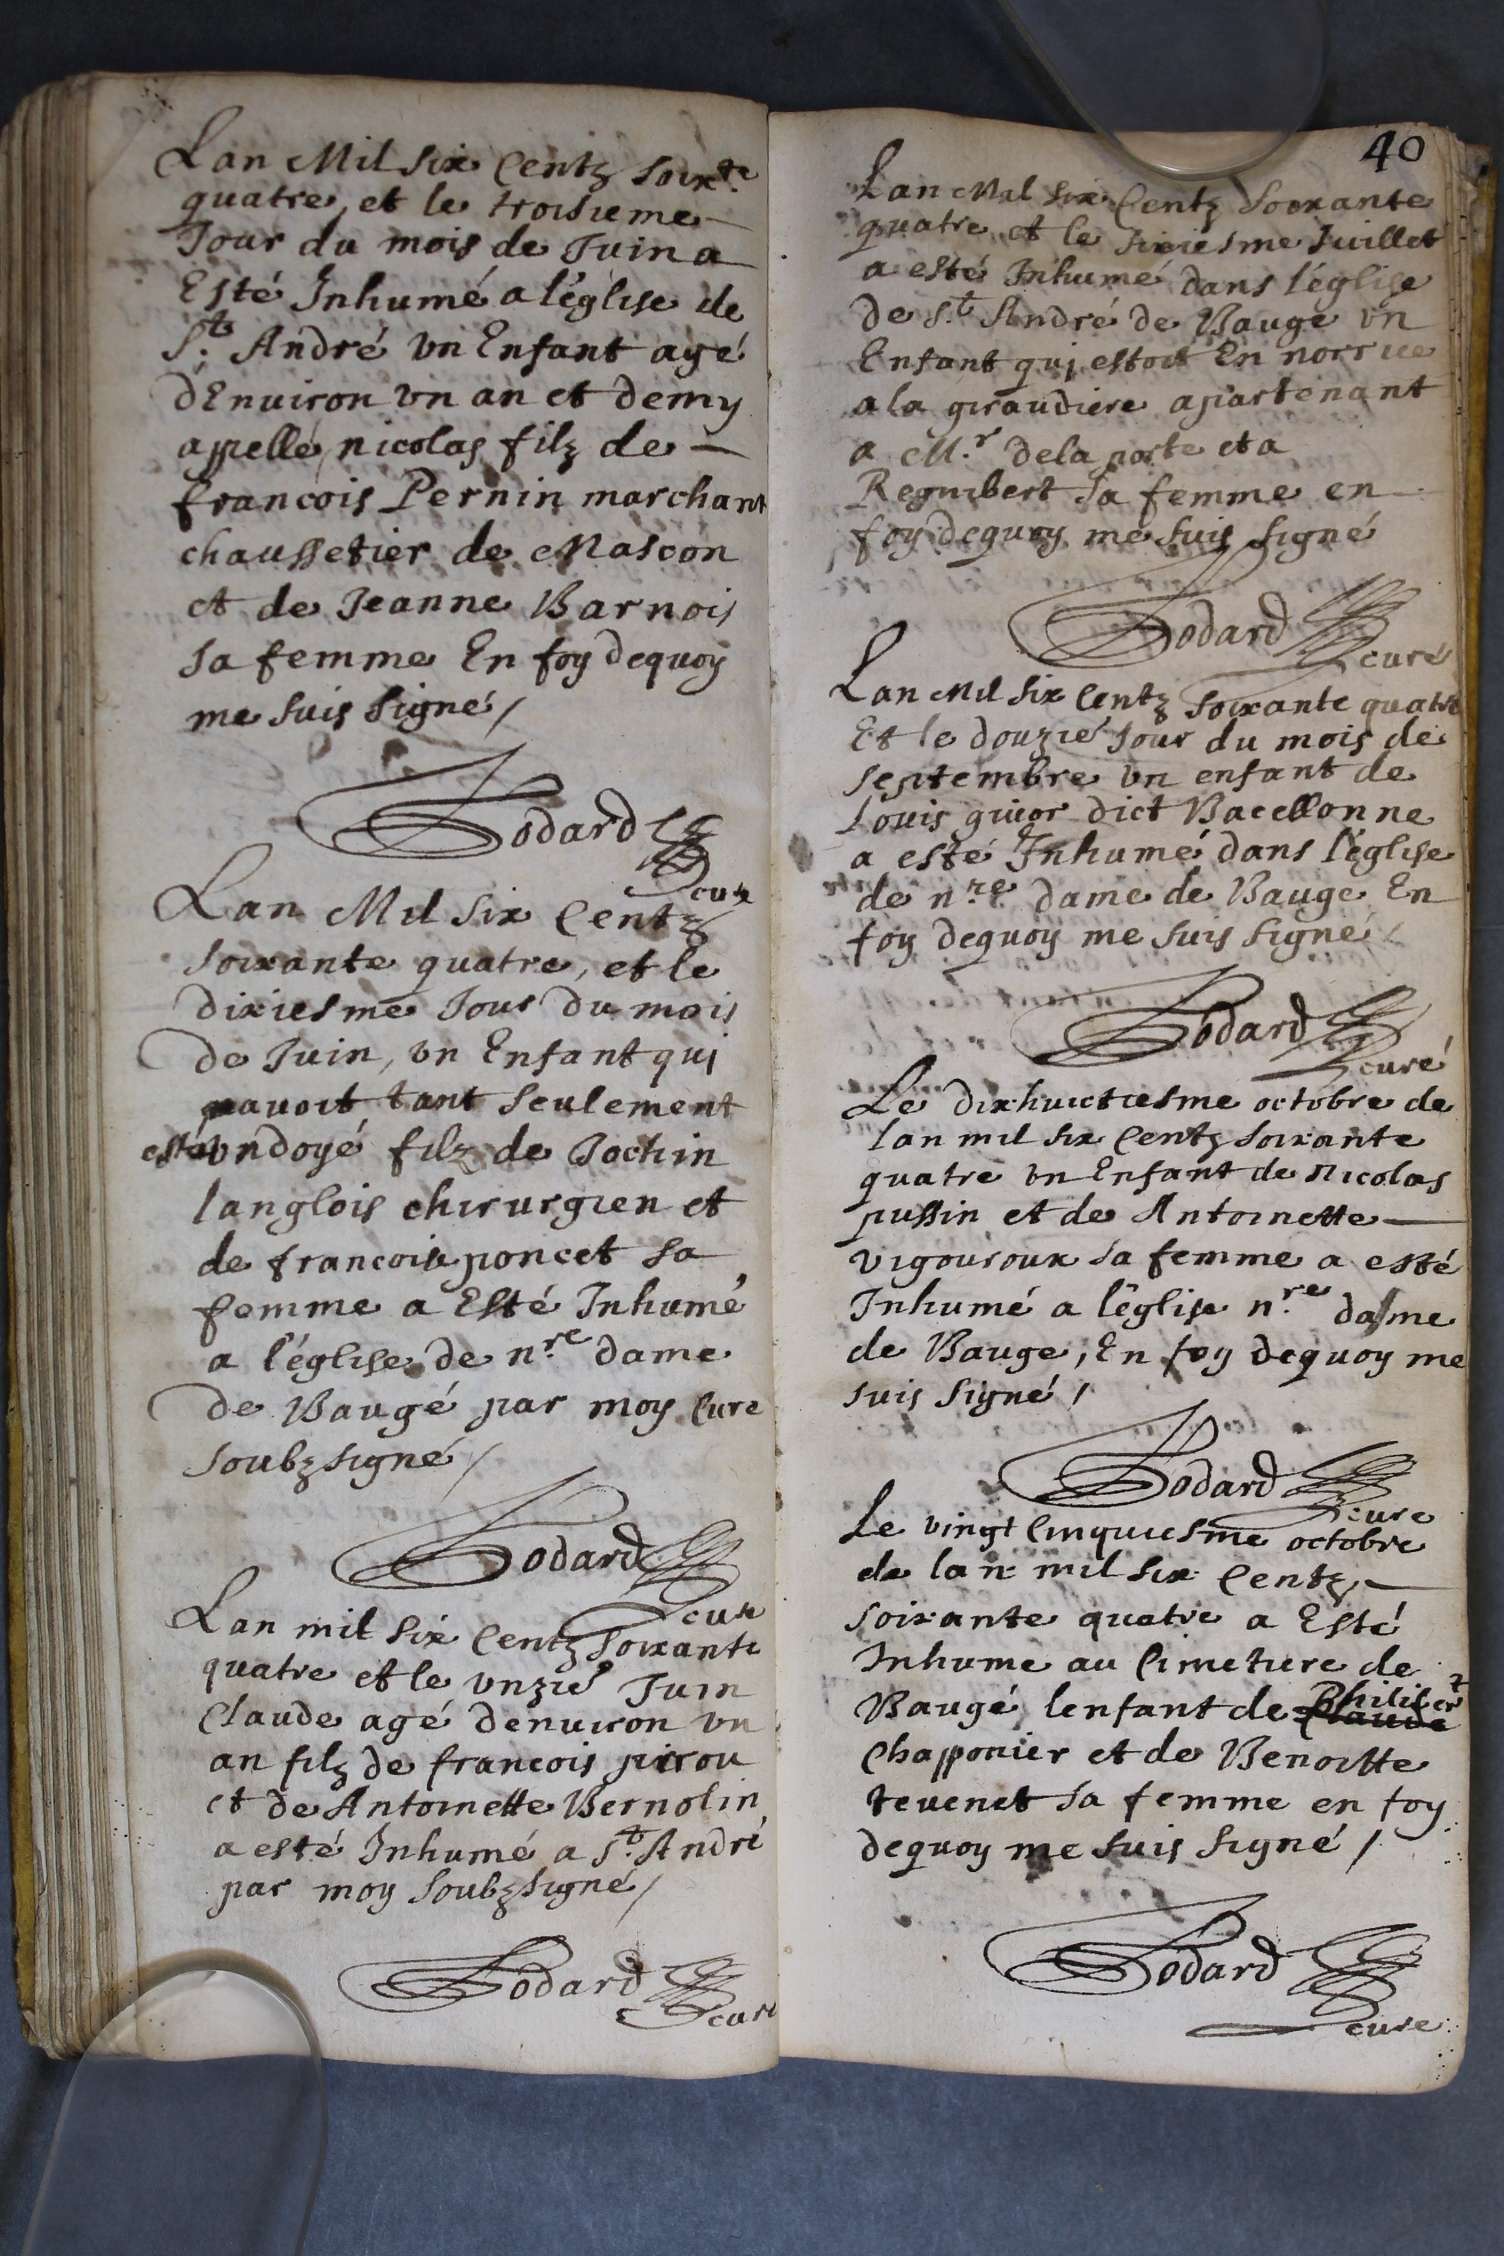 Lan Mil six Centz soixte.
quatre, et le troisieme
Jour du mois de Juin a
Esté Inhumé a l'église de
St. André un Enfant agé
d'Enuiron un an et demy
apellé, nicolas filz de
francois Pernin marchant
chaussetier de Mascon
et de Jeanne Barnois
sa femme En foy dequoy
me suis signé /
Godard
cure
Lan Mil six Centz
soixante quatre, et le
dixiesme Jour du mois
de Juin, un Enfant qui
nauoit tant seulement
esté undoyé filz de Jochin
langlois chirurgien et
de francoise poncet sa
femme a Esté Inhumé
a l'église de nre. dame
de Baugé par moy Cure
soubzsigné /
Godard
cure
Lan mil six Centz soixante
quatre et le unzié Juin
Claude agé denuiron un
an filz de francois pirou
et de Antoinette Bernolin
a esté Inhumé a St. André
par moy soubzsigné /
Godard
curé
40
Lan Mil six Centz soixante
quatre et le sixiesme Juillet
a esté Inhumé dans l'église
de St. André de Bauge un
Enfant qui estoit En norrice
a la giraudiere apartenant
a Mr. dela porte et a
Reguibert sa femme en
foy dequoy me suis signé
Godard
curé
Lan Mil six Centz soixante quatre
Et le douzié Jour du mois de
septembre un enfant de
Louis guior dict Bacellonne
a esté Inhumé dans l'église
de nre. dame de Bauge En
foy dequoy me suis signé /
Godard
curé
Le dixhuictiesme octobre de
lan mil six Centz soixante
quatre un Enfant de Nicolas
pussin et de Antoinette
vigouroux sa femme a esté
Inhumé a l'église nre. dame
de Bauge, En foy dequoy me
suis signé /
Godard
cure
Le vingt Cinquiesme octobre
de lan mil six Centz
soixante quatre a Esté
Inhume au Cimetiere de
Baugé lenfant de Claude Philibert
Chapponier et de Benoitte
teuenet sa femme en foy
dequoy me suis signé /
Godard
cure